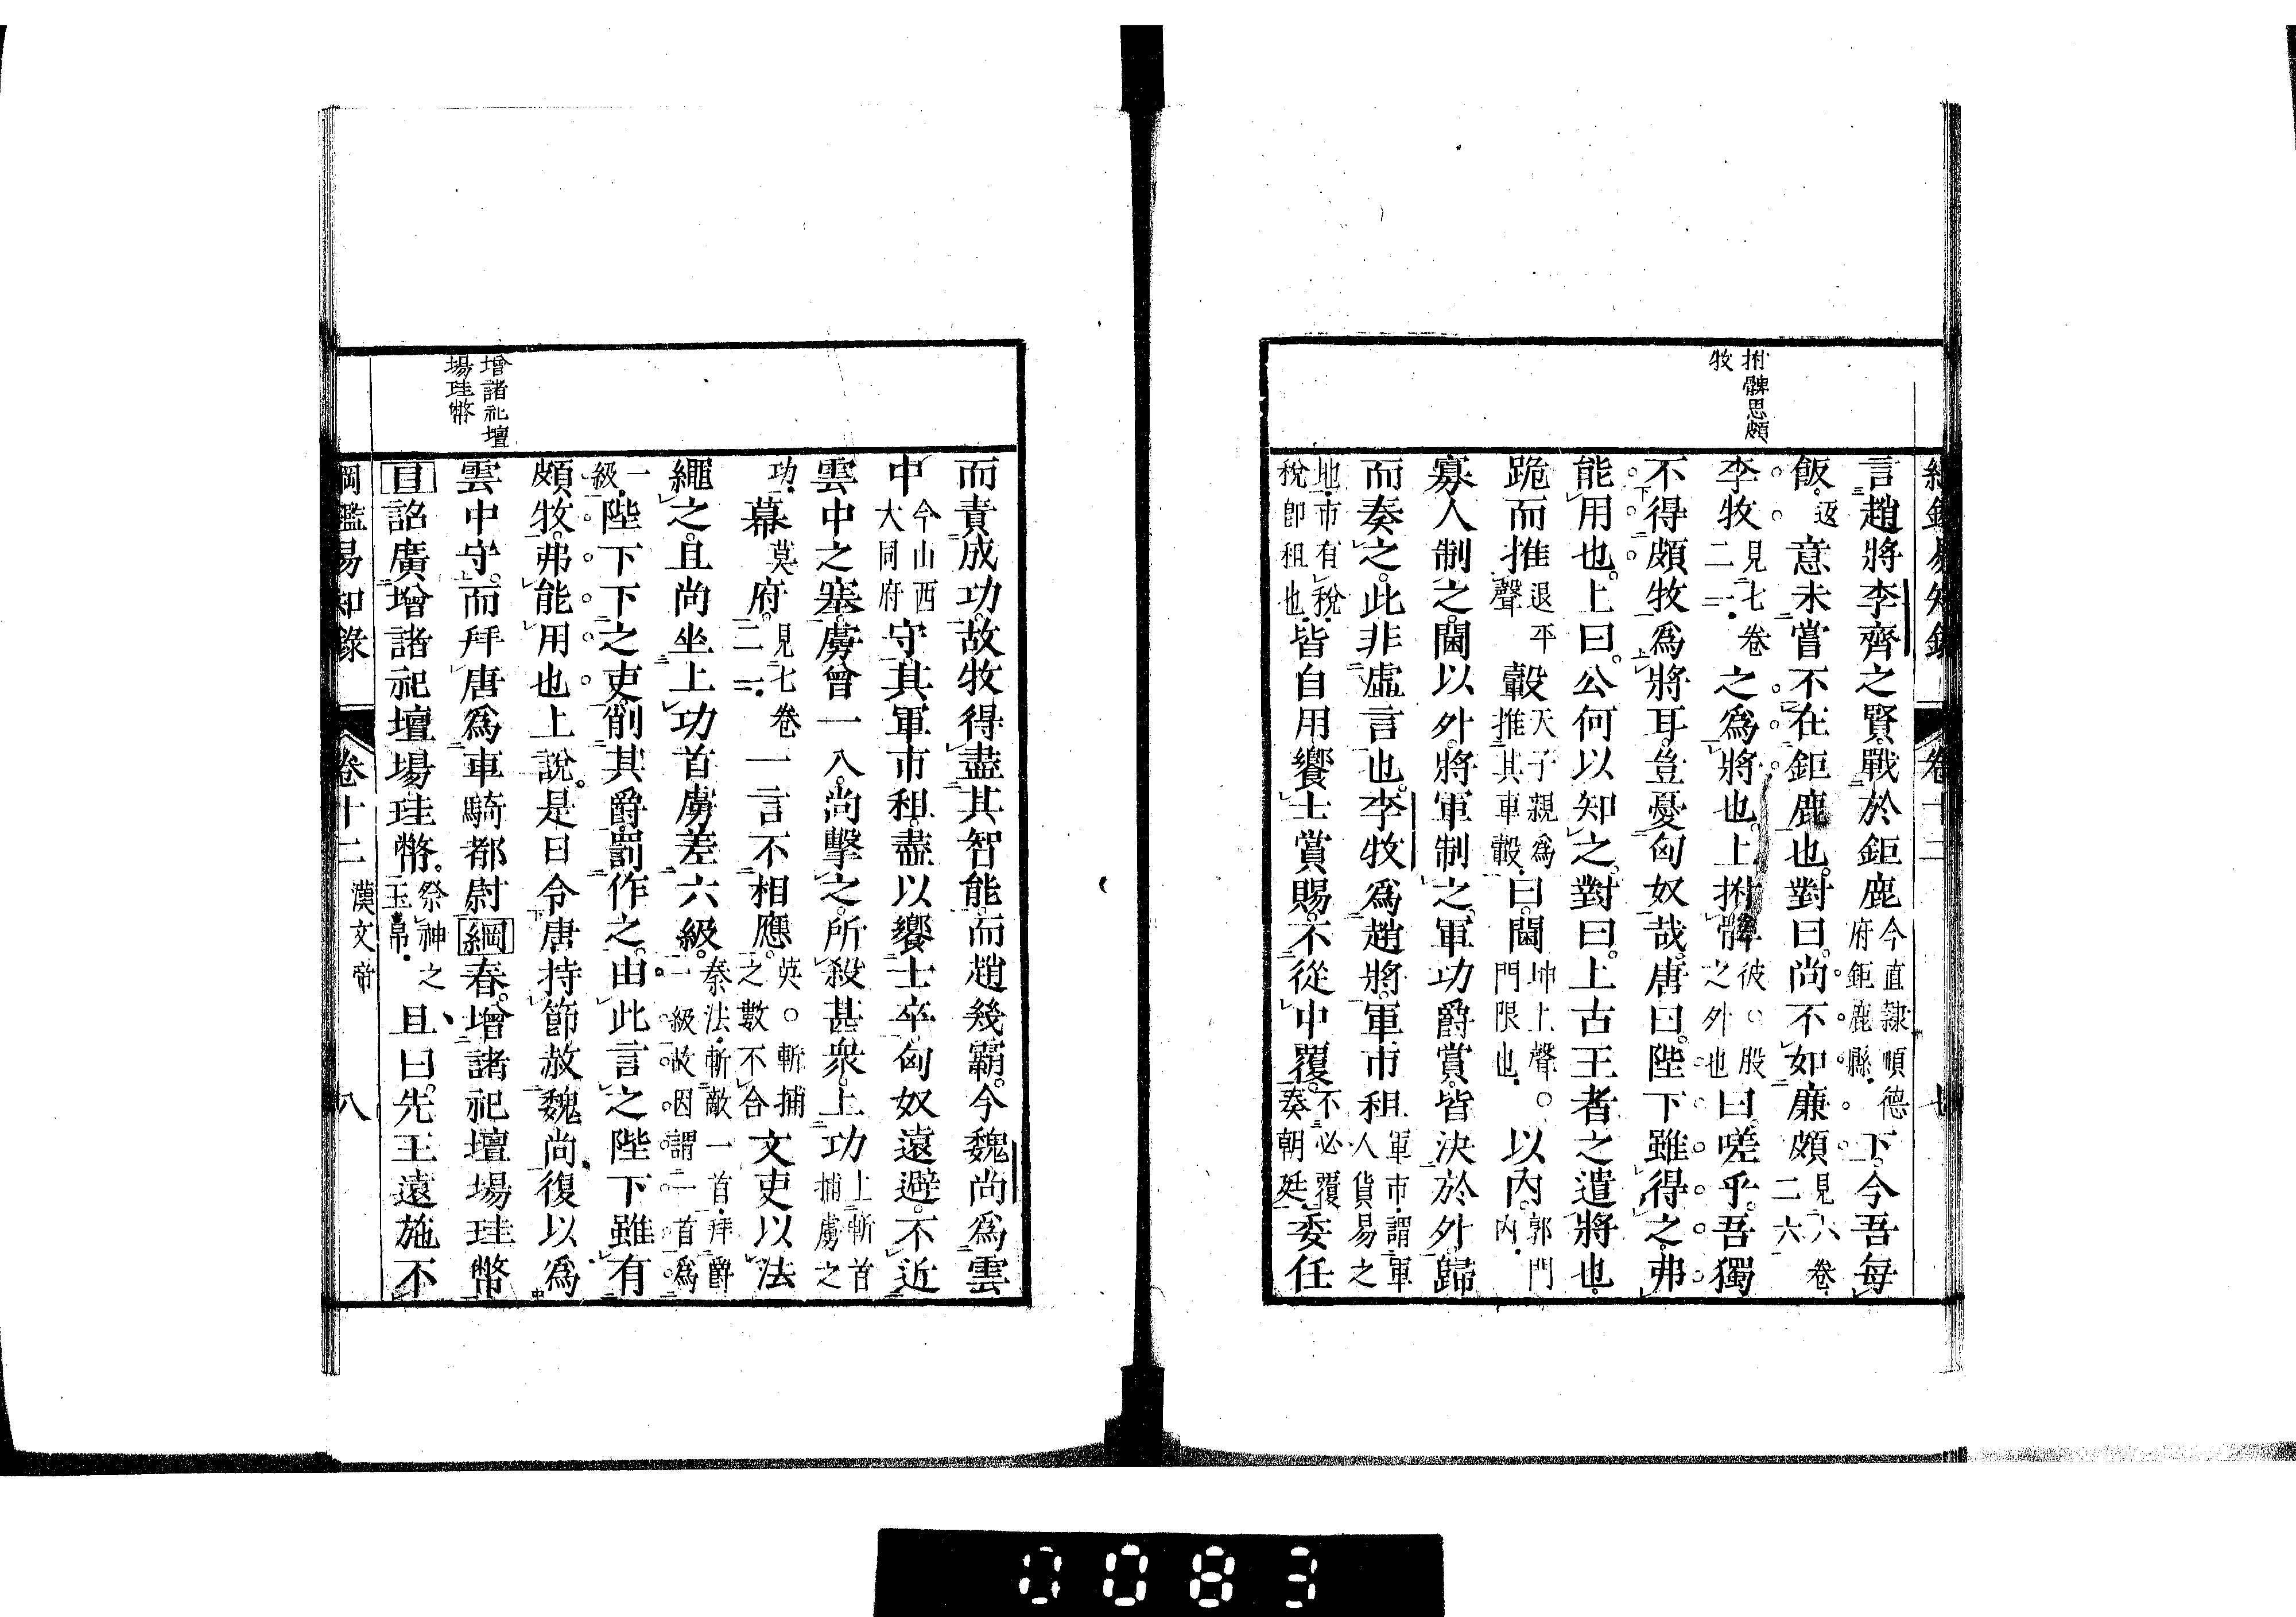 綱鑑易知錄 卷十二 七
拊髀思頗
牧
言趙將李齊之賢。戰於鉅鹿今直隸順德府鉅鹿縣。下。今吾每
飯。返意未嘗不在鉅鹿也。對曰。尚不如廉頗見六卷二六
李牧見七卷二二。之爲將也。上拊髀彼。○股之外也曰。嗟乎。吾獨
不得頗牧爲將耳。豈憂匈奴哉。唐曰。陛下雖得之。弗
能用也。上曰。公何以知之。對曰。上古王者之遣將也。
跪而推退平聲轂天子親爲推其車轂。曰。閫坤上聲。○門限也。以內。郭門內。
寡人制之。閫以外。將軍制之。軍功爵賞。皆決於外。歸
而奏之。此非虛言也。李牧爲趙將。軍市租軍市。謂軍人貨易之
地。市有稅。稅卽租也。皆自用饗士。賞賜。不從中覆。不必覆奏朝廷。委任
而責成功。故牧得盡其智能。而趙幾霸。今魏尚爲雲
中今山西大同府守。其軍市租。盡以饗士卒。匈奴遠避。不近
雲中之塞。虜曾一入。尚擊之。所殺甚衆。上功上斬首捕虜之
功。幕莫府。見七卷二二。一言不相應。英。○斬捕之數不合文吏以法
繩之。且尚坐上功首虜差六級。秦法。斬敵一首。拜爵一級。故因謂一首爲
一級。陛下下之吏。削其爵。罰作之。由此言之。陛下雖有
頗牧。弗能用也。上說。是日令唐持節赦魏尚。復以爲
雲中守。而拜唐爲車騎都尉 綱 春。增諸祀壇場珪幣
增諸祀壇
場珪幣
目 詔廣增諸祀壇場珪幣。祭神之玉帛。且曰。先王遠施不
綱鑑易知錄 卷十二 漢文帝 八
0083